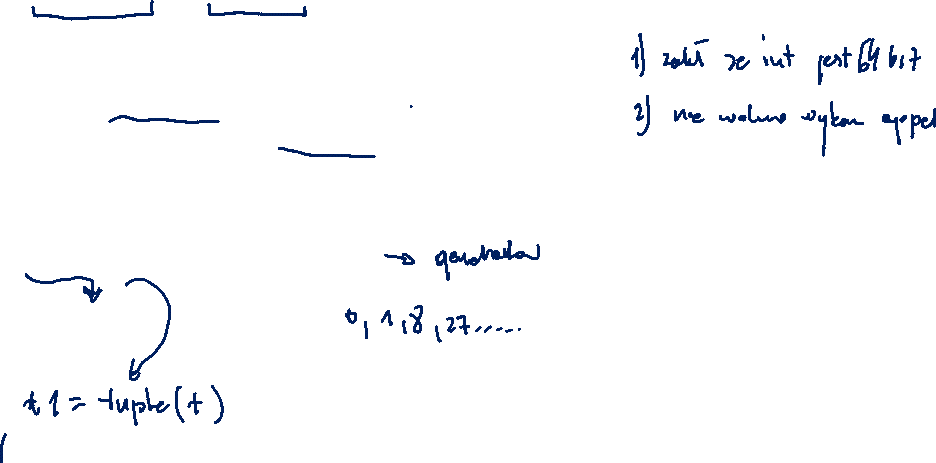 1) zakł że int jest 64 bit
2) nie wolno wykon
→ generator
0, 1, 8, 27......
t1 = tuple(t)